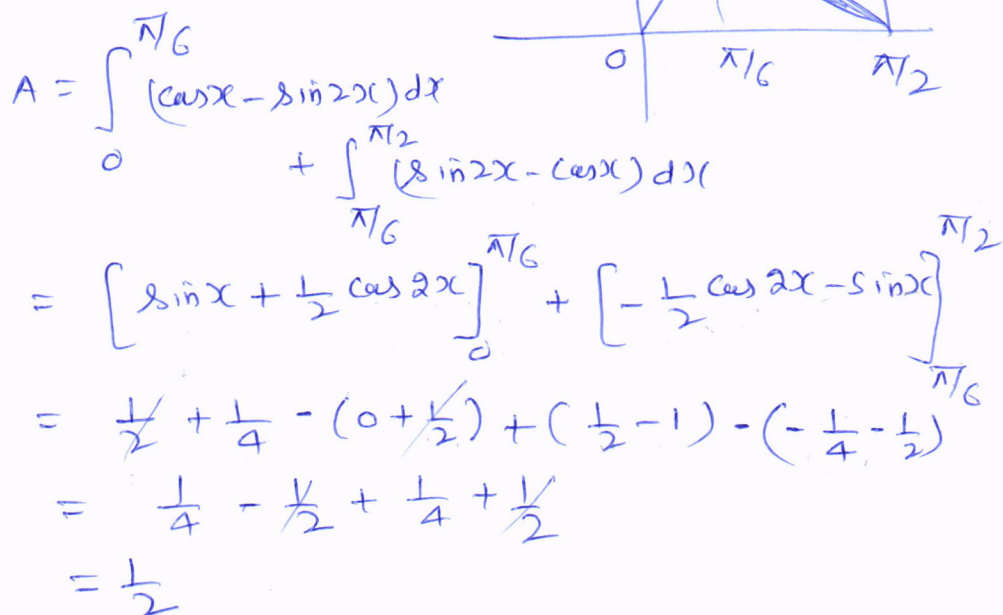 0 π/6 π/2
A = ∫₀^{π/6} (cosx - sin2x)dx
+ ∫_{π/6}^{π/2} (sin2x - cosx)dx
= [sinx + 1/2 cos2x]₀^{π/6} + [-1/2 cos2x - sinx]_{π/6}^{π/2}
= 1/2 + 1/4 - (0 + 1/2) + (1/2 - 1) - (-1/4 - 1/2)
= 1/4 - 1/2 + 1/4 + 1/2
= 1/2